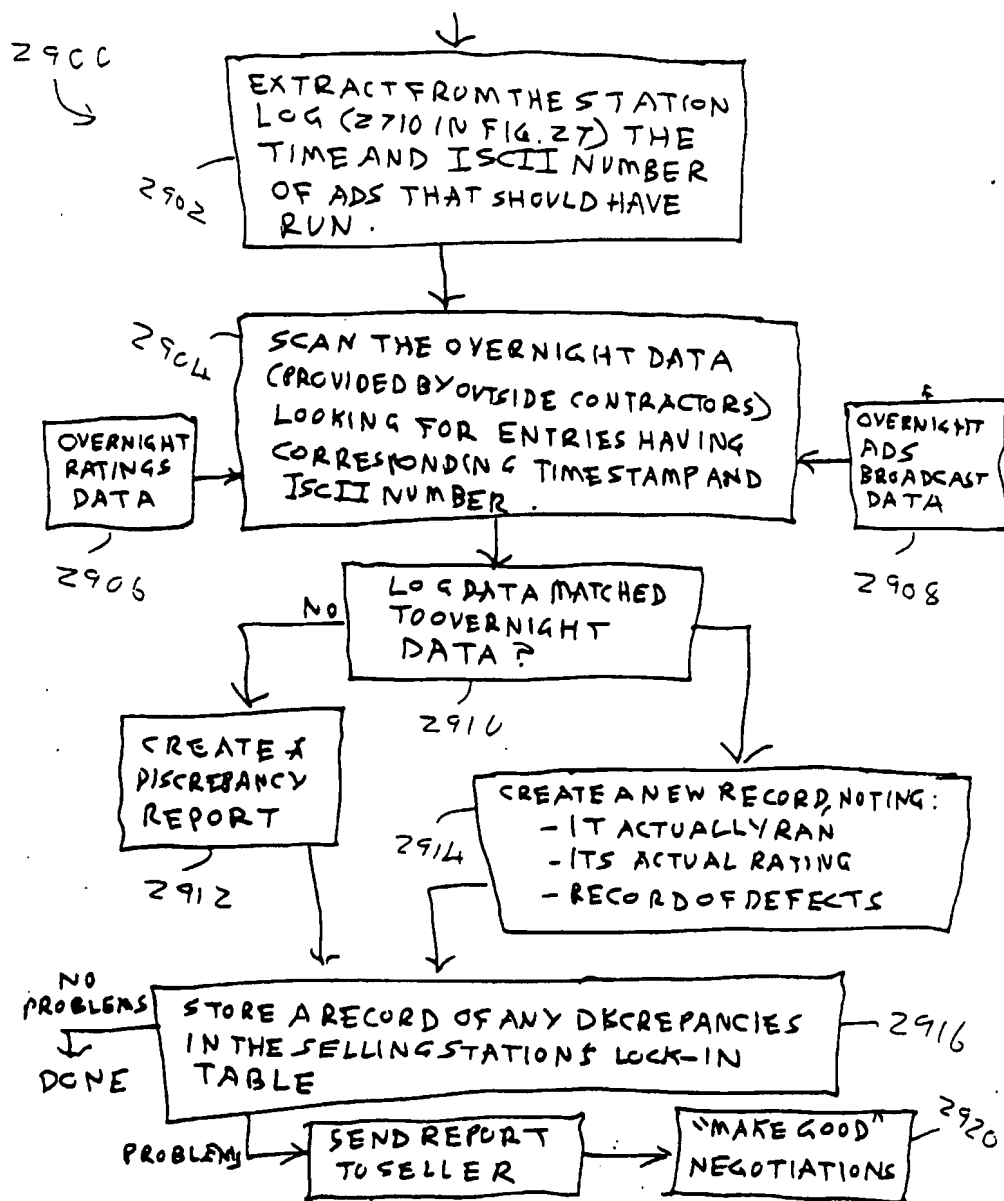 29CC
EXTRACT FROM THE STATION
LOG (2710 IN FIG. 27) THE
TIME AND ISCII NUMBER
OF ADS THAT SHOULD HAVE
RUN.
2902
2904
SCAN THE OVERNIGHT DATA
(PROVIDED BY OUTSIDE CONTRACTORS)
LOOKING FOR ENTRIES HAVING
CORRESPONDING TIMESTAMP AND
ISCII NUMBER.
OVERNIGHT
RATINGS
DATA
2906
OVERNIGHT
ADS
BROADCAST
DATA
2908
LOG DATA MATCHED
TO OVERNIGHT
DATA?
2910
NO
CREATE A
DISCREPANCY
REPORT
2912
CREATE A NEW RECORD, NOTING:
- IT ACTUALLY RAN
- ITS ACTUAL RATING
- RECORD OF DEFECTS
2914
NO
PROBLEMS
DONE
STORE A RECORD OF ANY DISCREPANCIES
IN THE SELLING STATIONS LOCK-IN
TABLE
2916
PROBLEMS
SEND REPORT
TO SELLER
"MAKE GOOD"
NEGOTIATIONS
2920